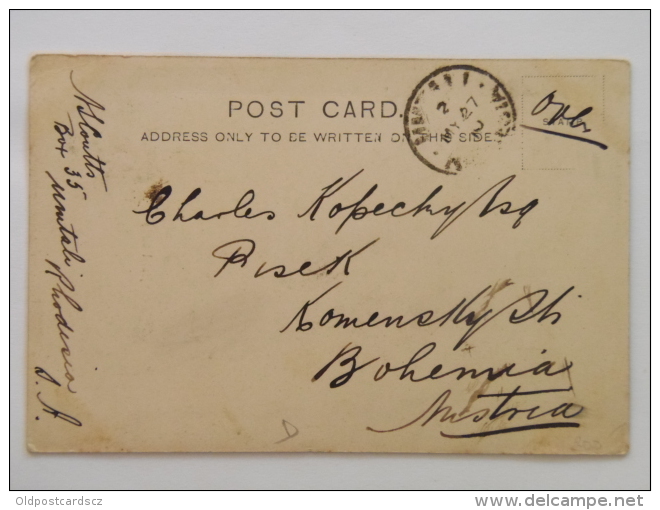 POST CARD.
ADDRESS ONLY TO BE WRITTEN ON THIS SIDE
2
MY 27
Over
Charles Kopecky Esq
Pisek
Komensky Str
Bohemia
Austria
NS Coutts
Box 35
Umtali Rhodesia
S. A.
Oldpostcardscz
delcampe.net